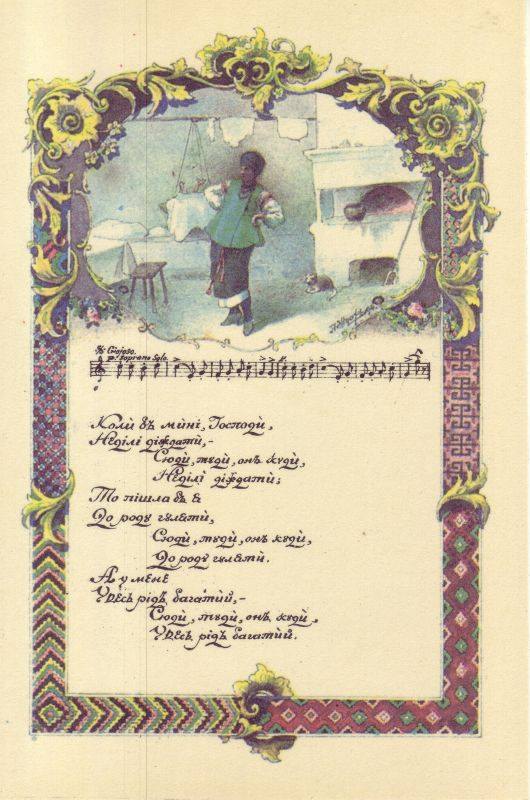 Giojoso.
Soprano Solo.
Коли бъ мині, Господи,
Неділі діждати,—
Сюди, туди, онъ куди,
Неділі діждати;
То пішла бъ я
До роду гуляти,
Сюди, туди, онъ куди,
До роду гуляти.
А у мене
Увесь рідъ багатий,—
Сюди, туди, онъ куди,
Увесь рідъ багатий.